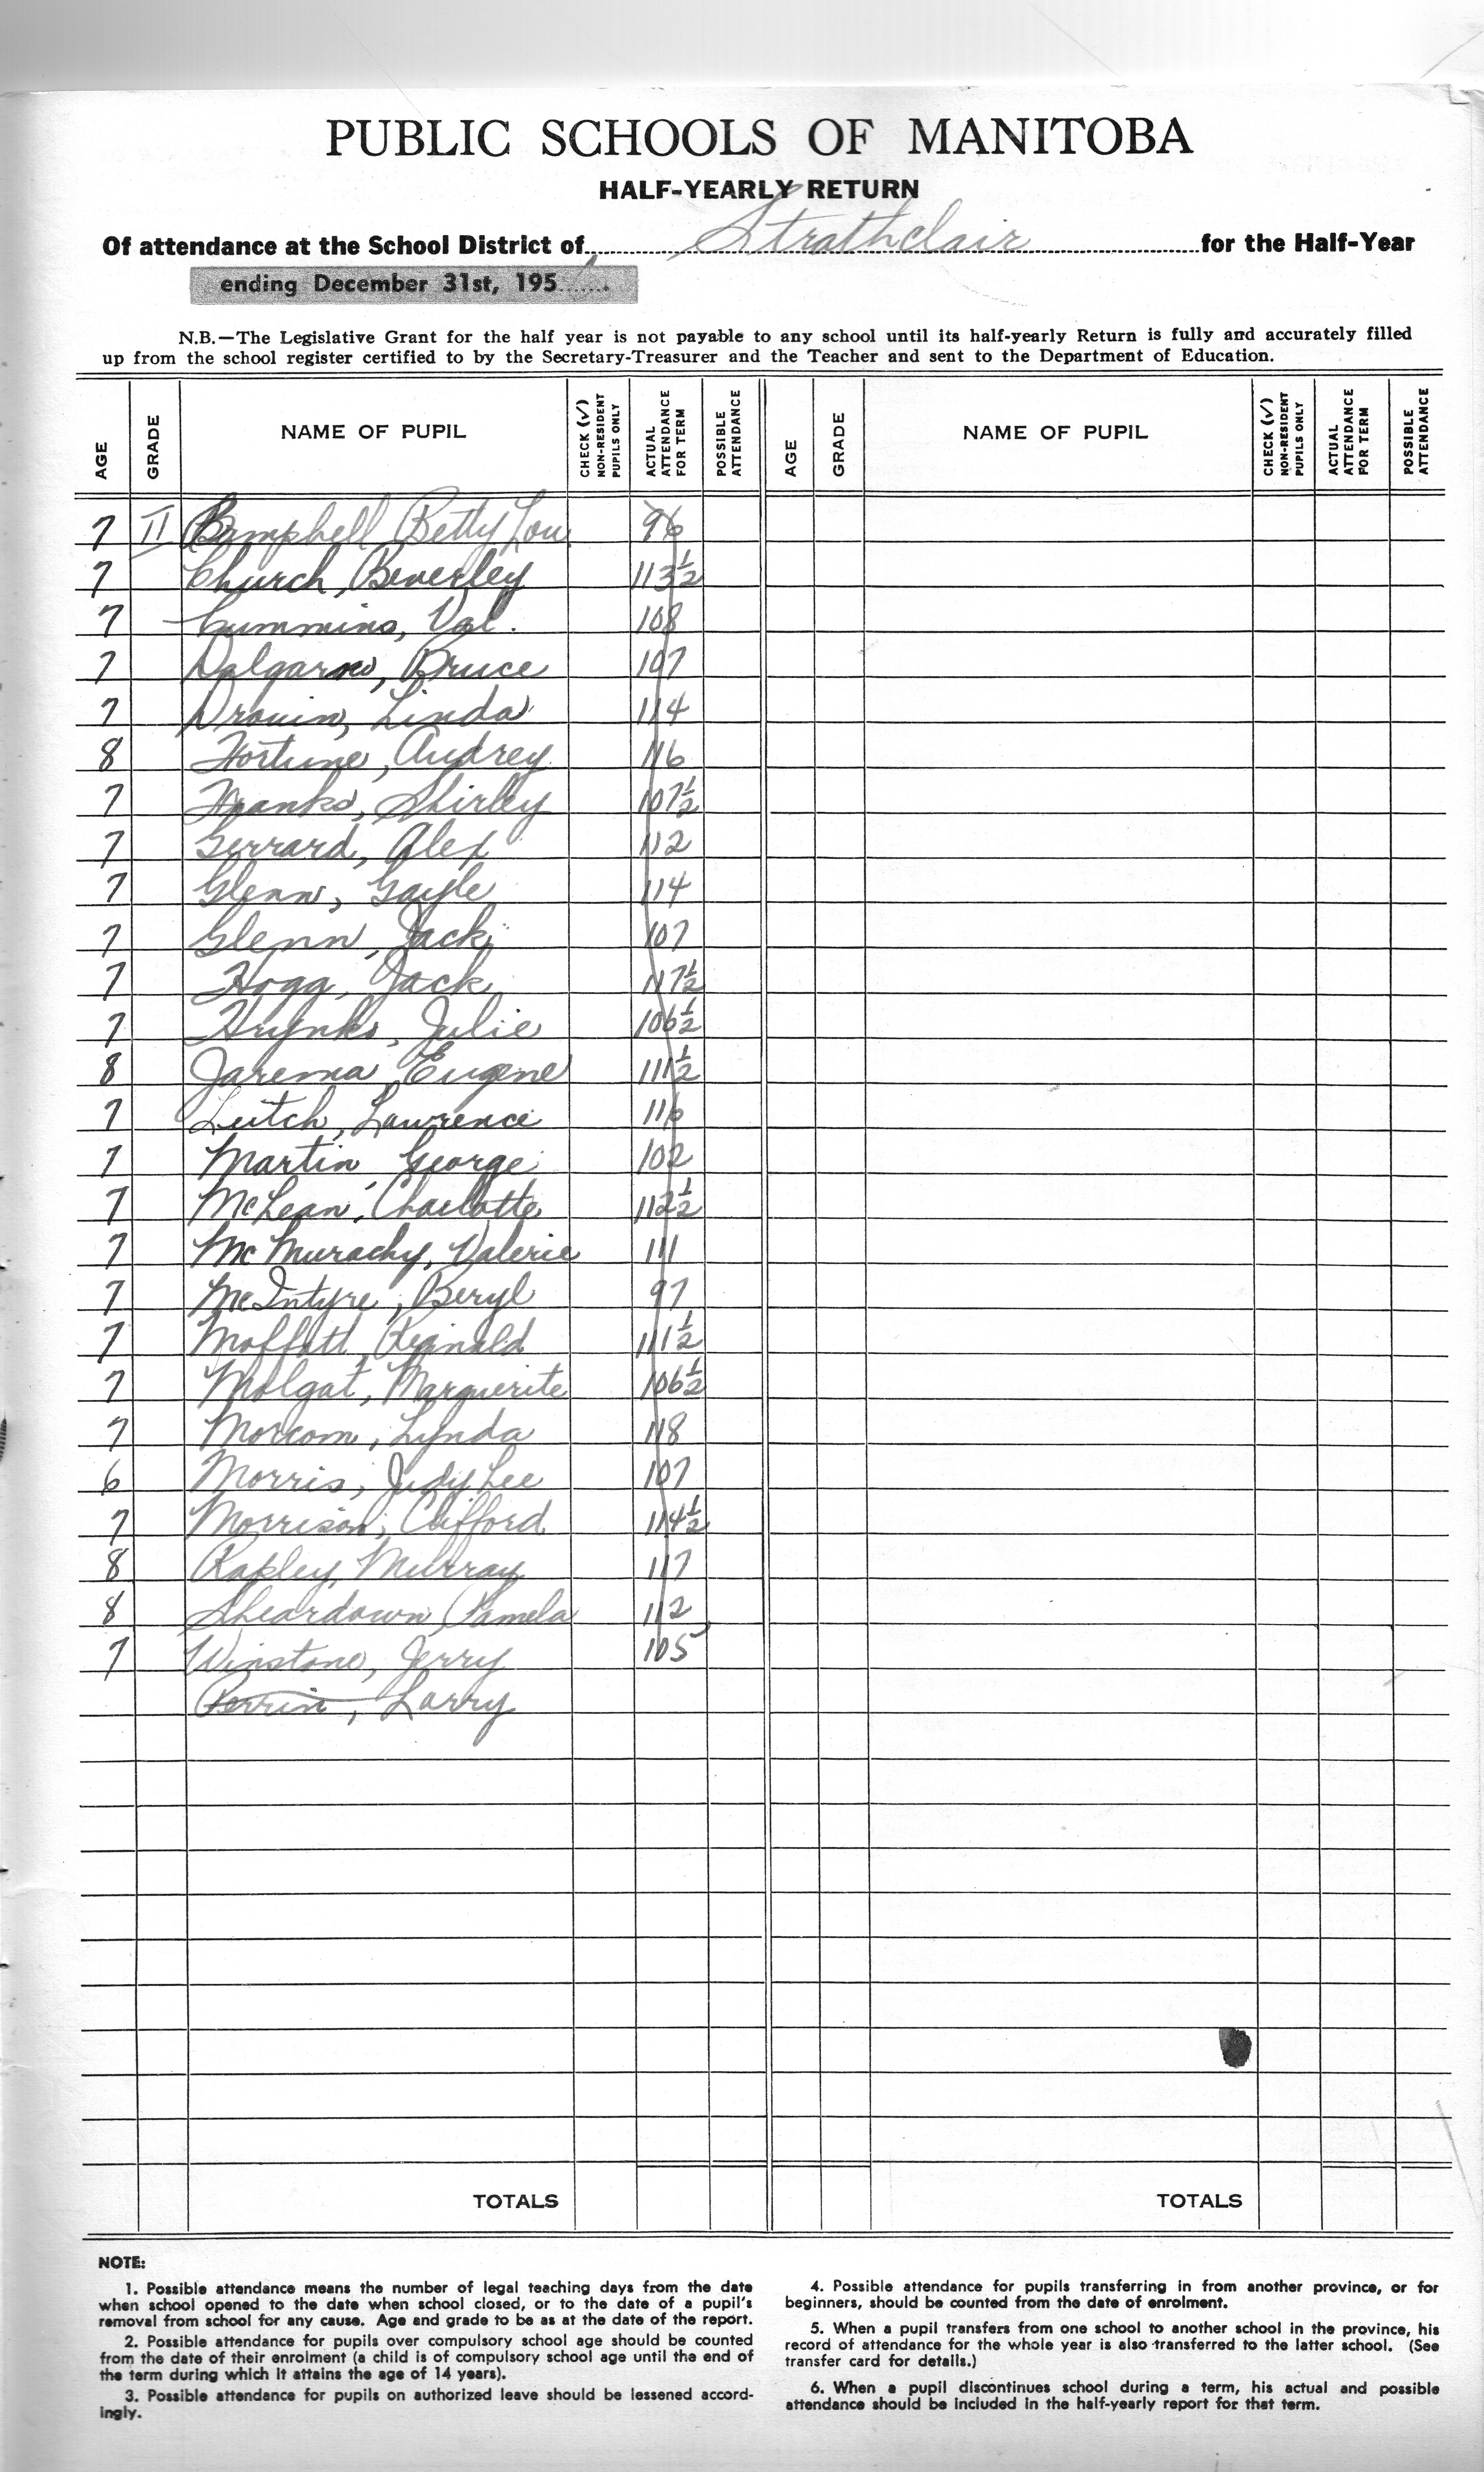 PUBLIC SCHOOLS OF MANITOBA
HALF-YEARLY RETURN
Of attendance at the School District of Strathclair for the Half-Year
ending December 31st, 195
N.B.—The Legislative Grant for the half year is not payable to any school until its half-yearly Return is fully and accurately filled
up from the school register certified to by the Secretary-Treasurer and the Teacher and sent to the Department of Education.
AGE GRADE NAME OF PUPIL CHECK (✓) NON-RESIDENT PUPILS ONLY ACTUAL ATTENDANCE FOR TERM POSSIBLE ATTENDANCE AGE GRADE NAME OF PUPIL CHECK (✓) NON-RESIDENT PUPILS ONLY ACTUAL ATTENDANCE FOR TERM POSSIBLE ATTENDANCE
7 II Betty Lou 96
7 Church, Beverley 113½
7 Cummins, Val. 108
7 Dalgarno, Bruce 107
7 Drouin, Linda 114
8 Fortune, Audrey 116
7 Franks, Shirley 107½
7 Gerrard, Alex 112
7 Glenn, Gayle 114
7 Glenn, Jack 107
7 Hogg, Jack 117½
7 Hrynko, Julie 106½
8 Jarema, Eugene 111½
7 Leitch, Lawrence 116
7 Martin, George 102
7 McLean, Charlotte 112½
7 McMurachy, Valerie 111
7 McIntyre, Beryl 97
7 Moffatt, Reginald 111½
7 Molgat, Marguerite 106½
7 Morcom, Lynda 118
6 Morris, Judy Lee 107
7 Morrison, Clifford 114½
8 Rapley, Murray 117
8 Sheardown, Pamela 112
7 Winstone, Jerry 105
Perrin, Larry
TOTALS TOTALS
NOTE:
1. Possible attendance means the number of legal teaching days from the date
when school opened to the date when school closed, or to the date of a pupil's
removal from school for any cause. Age and grade to be as at the date of the report.
2. Possible attendance for pupils over compulsory school age should be counted
from the date of their enrolment (a child is of compulsory school age until the end of
the term during which it attains the age of 14 years).
3. Possible attendance for pupils on authorized leave should be lessened accord-
ingly.
4. Possible attendance for pupils transferring in from another province, or for
beginners, should be counted from the date of enrolment.
5. When a pupil transfers from one school to another school in the province, his
record of attendance for the whole year is also transferred to the latter school. (See
transfer card for details.)
6. When a pupil discontinues school during a term, his actual and possible
attendance should be included in the half-yearly report for that term.